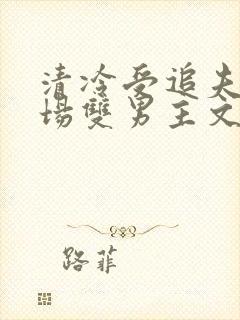 清冷受追夫
場雙男主文
路菲